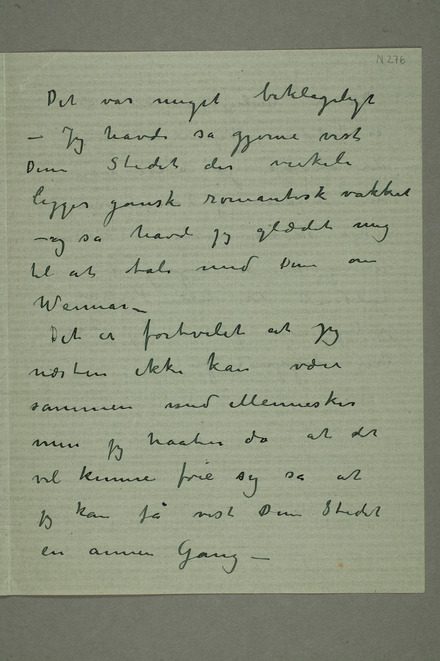 N 276
Det var meget beklageligt
– Jeg havde så gjerne vist
Dem Stedet der virkelig
ligger ganske romantisk vakkert
– og så havde jeg glædet mig
til at tale med Dem om
Weimar –
Det er fortvilet at jeg
næsten ikke kan være
sammen med Mennesker
men jeg haaber da at det
vil kunne føie sig så at
jeg kan få vist Dem Stedet
en annen Gang –